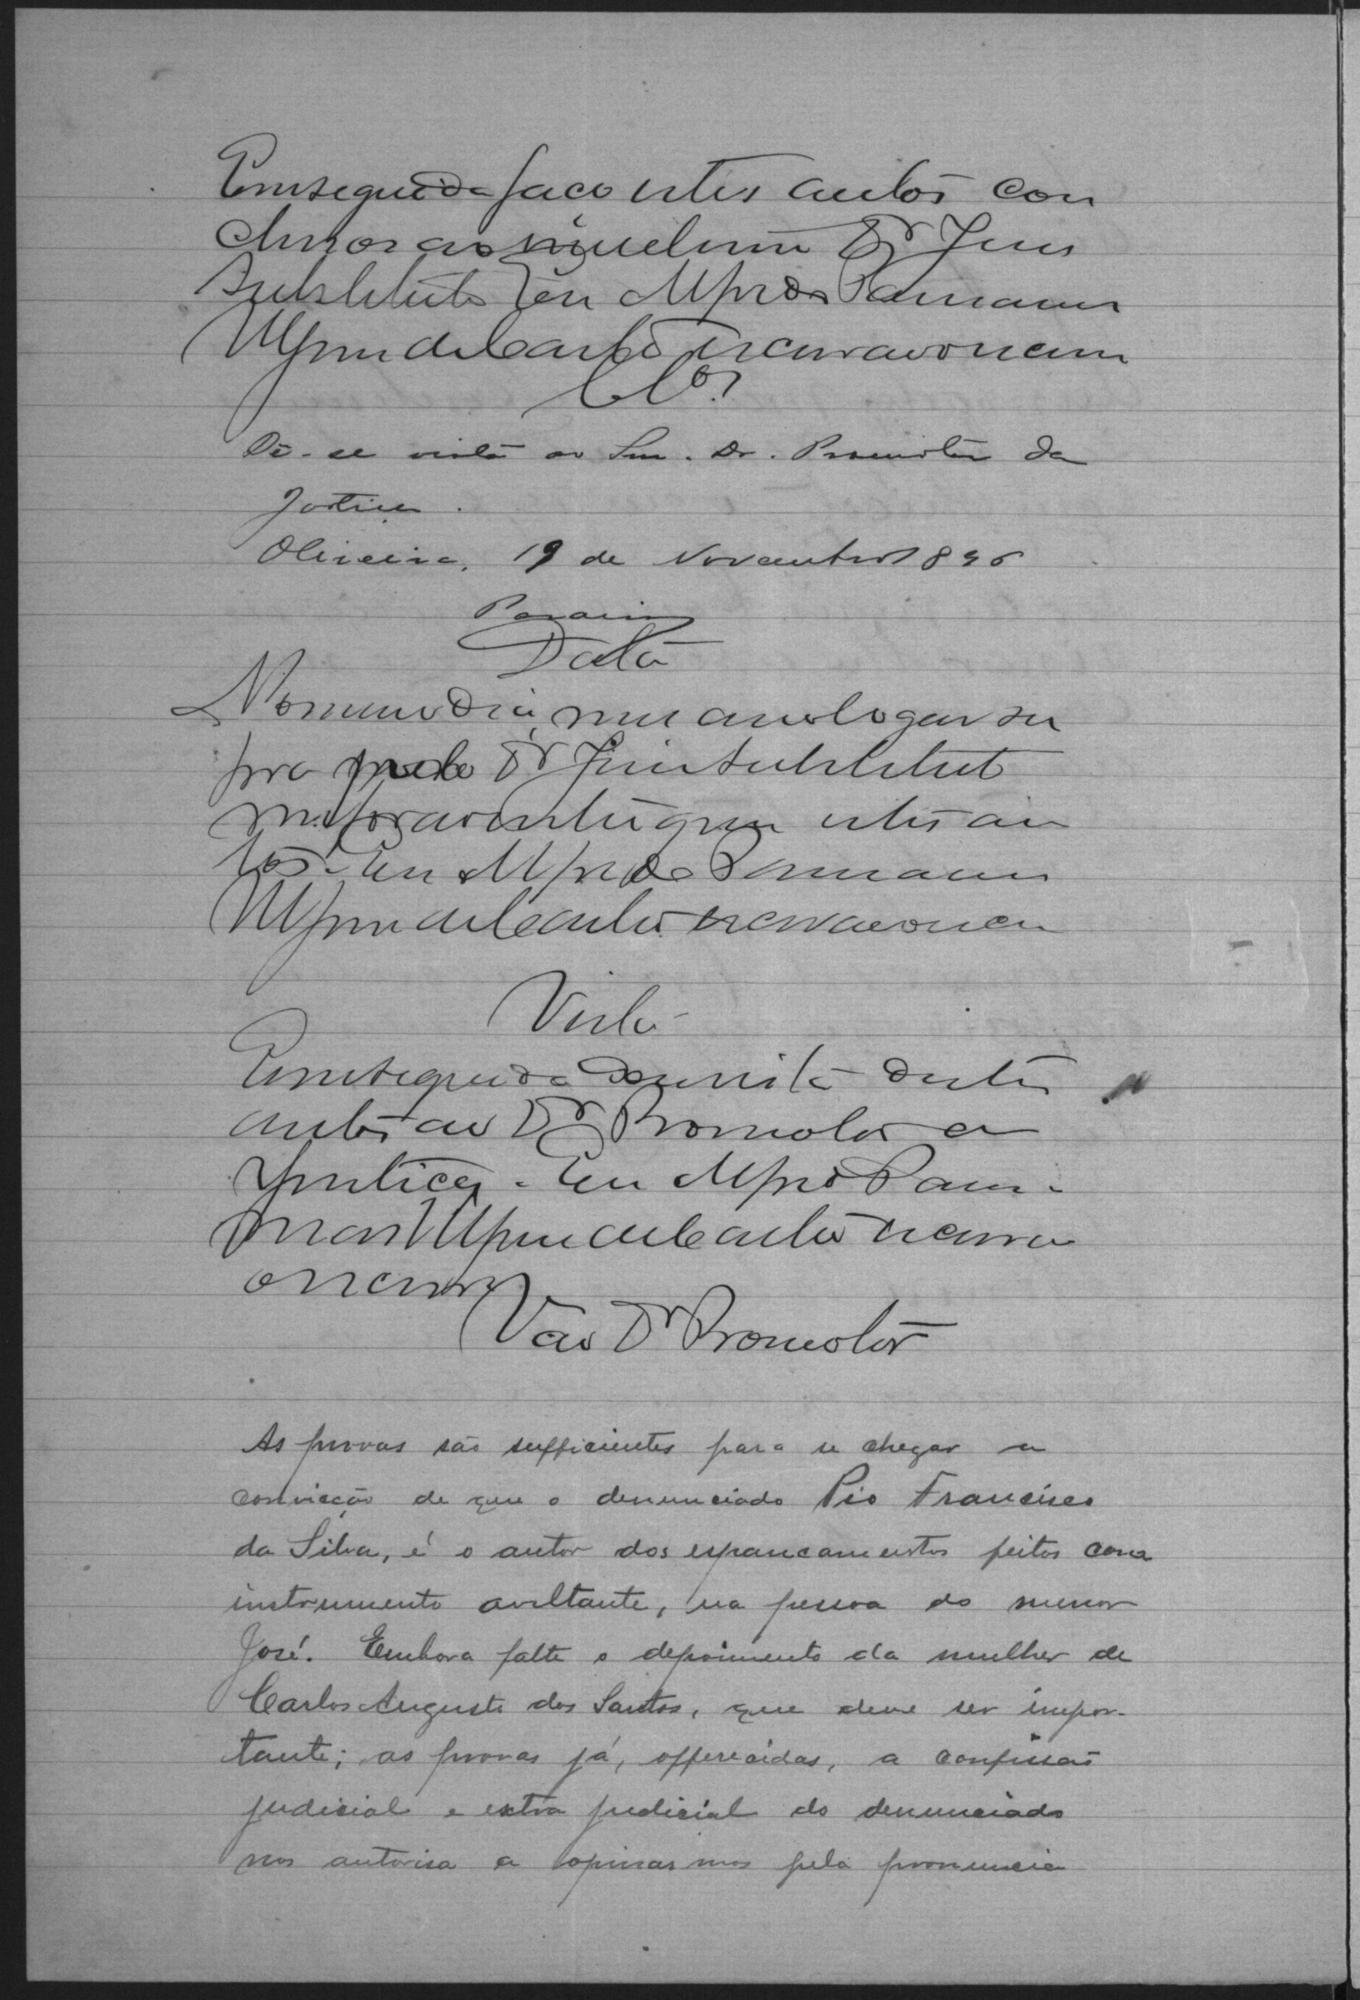 Em seguida faço estes autos con
clusos ao Dr Juis
Substituto Eu Alfredo
de Castro escrivão o escrevi
Clos.
Dê-se vista ao Snr. Dr. Promotor da
Justiça.
Oliveira, 19 de Novembro 1896
Data
No mesmo dia, mez anno logar su
pra pelo Dr Juis Substituto
me foram entregues estes au
tos. Eu Alfredo
de Castro escrivão o escrevi
Vista
Em seguida dou vista destes
autos ao Dr Promotor a
Justiça. Eu Alfredo
de Castro escrivão
o escrevi
Vão Dr Promotor
As provas são sufficientes para se chegar a
convicção de que o denunciado Pio Francisco
da Silva, é o autor dos espancamentos feitos com
instrumento aviltante, na pessoa do menor
José. Embora falte o depoimento da mulher de
Carlos Augusto dos Santos, que deve ser impor-
tante; as provas já, offerecidas, a confissão
judicial e extra judicial do denunciado
nos autorisa a opinarmos pela pronuncia